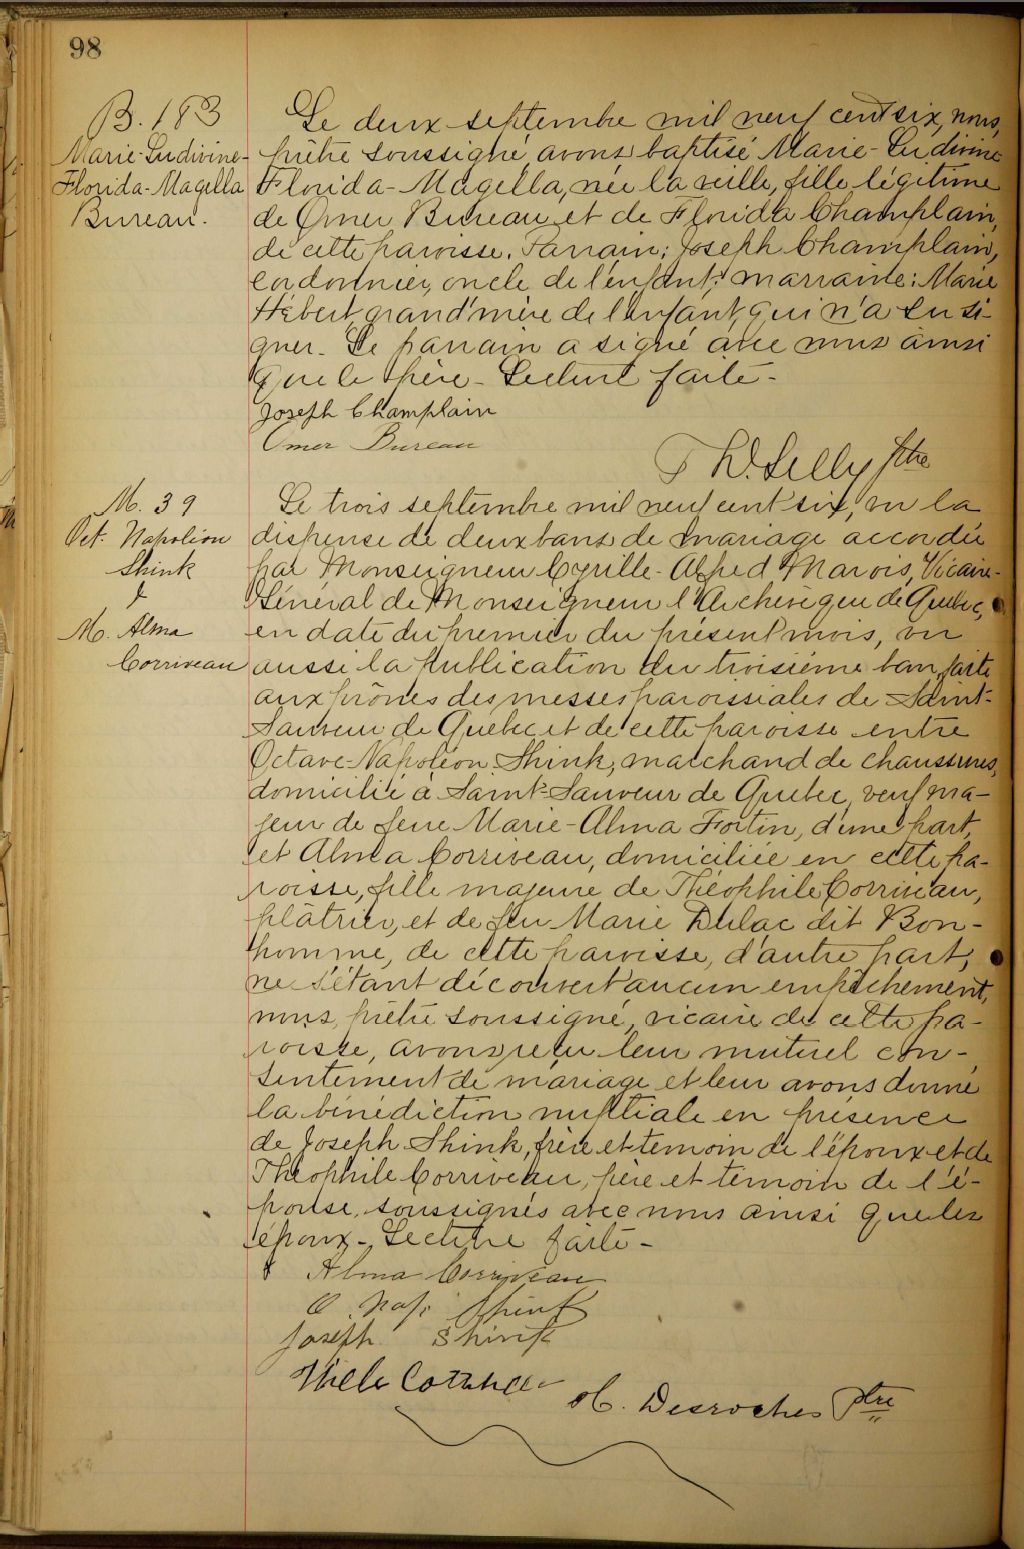 98
B. 183
Marie-Ludivine-
Florida-Magella
Bureau.
Le deux septembre mil neuf cent six, nous,
prêtre soussigné, avons baptisé Marie-Ludivine-
Florida-Magella, née la veille, fille légitime
de Omer Bureau et de Florida Champlain,
de cette paroisse. Parrain: Joseph Champlain,
cordonnier, oncle de l'enfant; marraine: Marie
Hébert, grand'mère de l'enfant, qui n'a su si-
gner. Le parrain a signé avec nous ainsi
que le père - Lecture faite -
Joseph Champlain
Omer Bureau
Th. D. Lelly ptre
M. 39
Oct. Napoléon
Shink
&
M. Alma
Corriveau
Le trois septembre mil neuf cent six, vu la
dispense de deux bans de mariage accordée
par Monseigneur Cyrille-Alfred Marois, Vicaire-
Général de Monseigneur l'Archevêque de Québec,
en date du premier du présent mois, vu
aussi la publication du troisième ban, faite
aux prônes des messes paroissiales de Saint-
Sauveur de Québec et de cette paroisse entre
Octave-Napoléon Shink, marchand de chaussures,
domicilié à Saint-Sauveur de Québec, veuf ma-
jeur de feue Marie-Alma Fortin, d'une part,
et Alma Corriveau, domiciliée en cette pa-
roisse, fille majeure de Théophile Corriveau,
plâtrier, et de feu Marie Dulac dit Bon-
homme, de cette paroisse, d'autre part;
ne s'étant découvert aucun empêchement,
nous, prêtre soussigné, vicaire de cette pa-
roisse, avons reçu leur mutuel con-
sentement de mariage et leur avons donné
la bénédiction nuptiale en présence
de Joseph Shink, frère et temoin de l'époux et de
Théophile Corriveau, père et témoin de l'é-
pouse, soussignés avec nous ainsi que les
époux - Lecture faite -
Alma Corriveau
O. Nap. Shink
Joseph Shink
H. Desroches Ptre